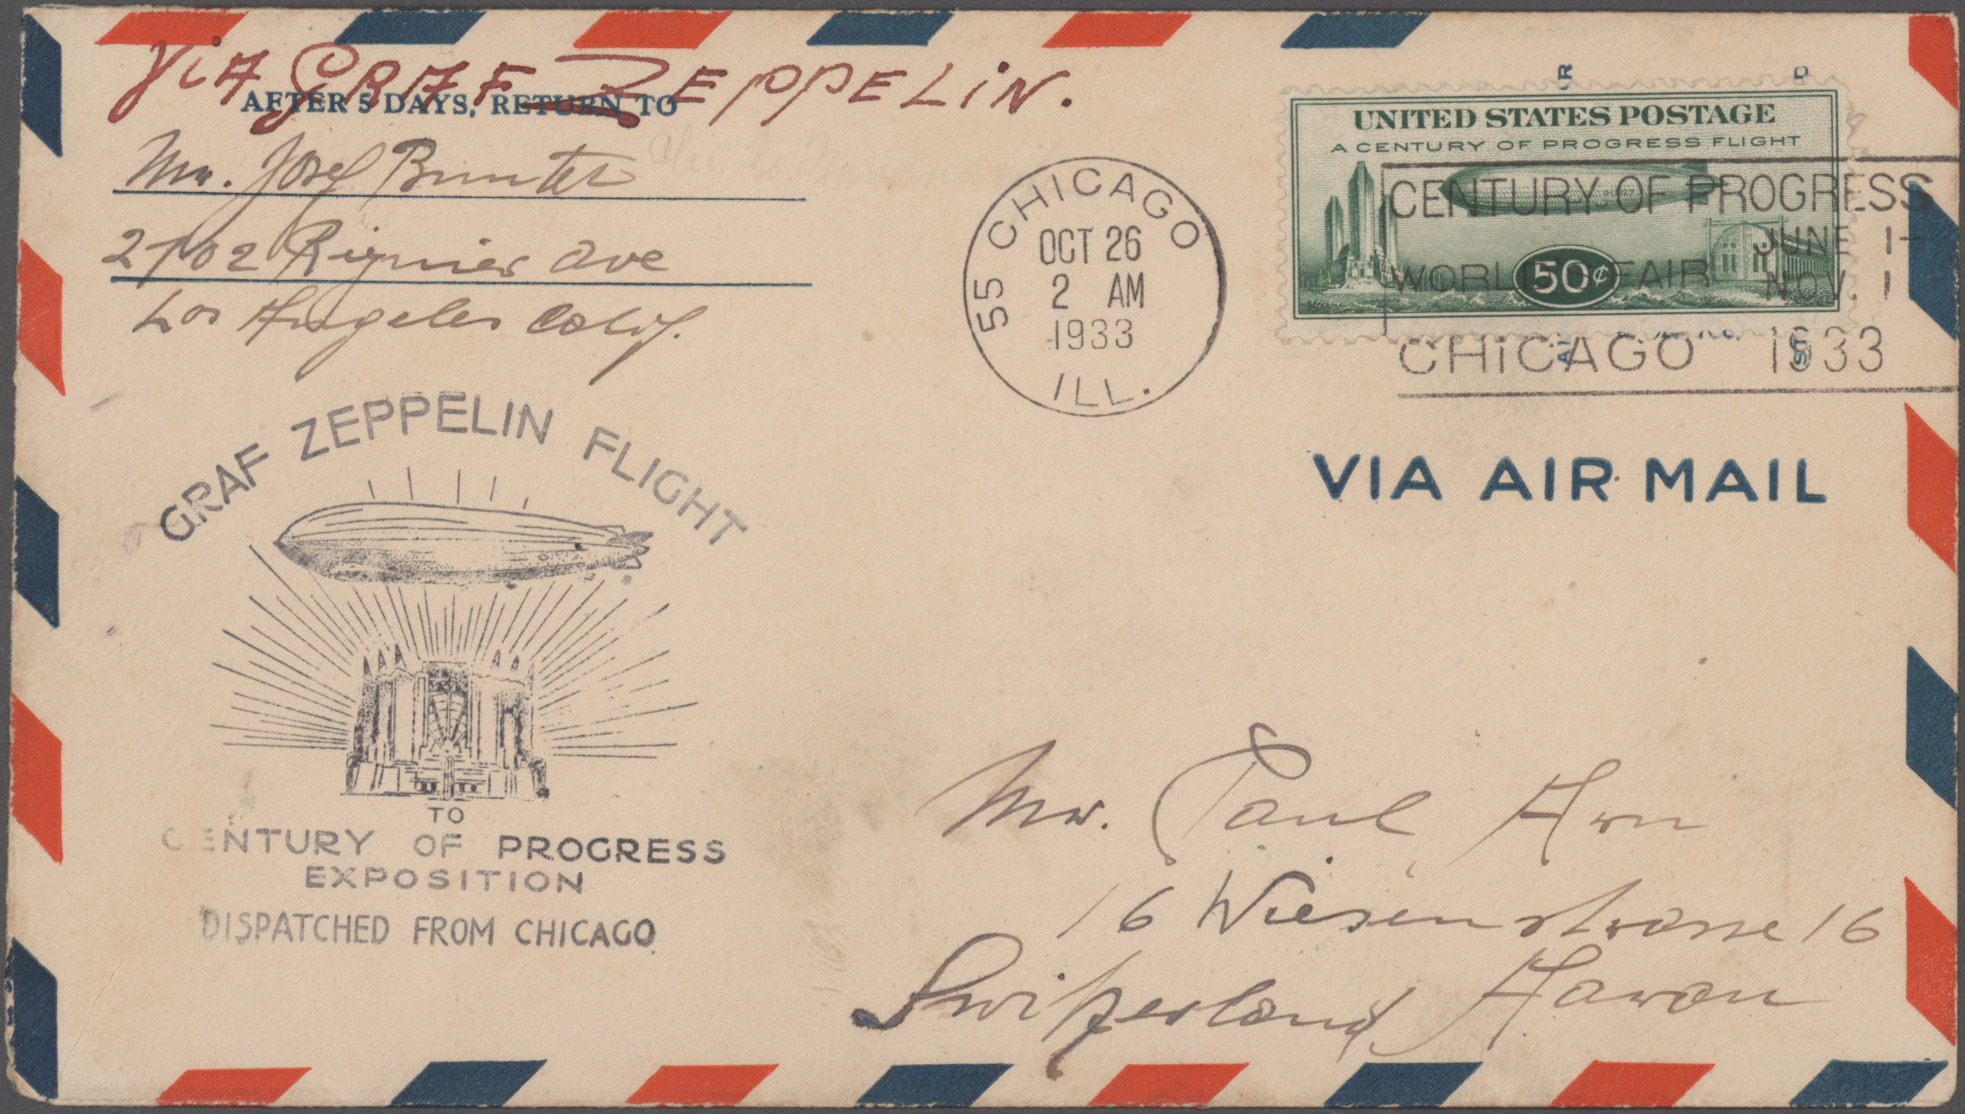 ViA GRAF ZEPPELiN.
AFTER 5 DAYS, RETURN TO
Mr. Josef
2702 Ave
Los Angeles Calif.
UNITED STATES POSTAGE
A CENTURY OF PROGRESS FLIGHT
50¢
CHICAGO
55
OCT 26
2 AM
1933
ILL.
CENTURY OF PROGRESS
JUNE 1-
WORLD FAIR
NOV. 1
CHiCAGO 1933
VIA AIR MAIL
GRAF ZEPPELIN FLIGHT
TO
CENTURY OF PROGRESS
EXPOSITION
DISPATCHED FROM CHICAGO
Mr. Paul
16 Wiesenstrasse 16
Switzerland Aarau